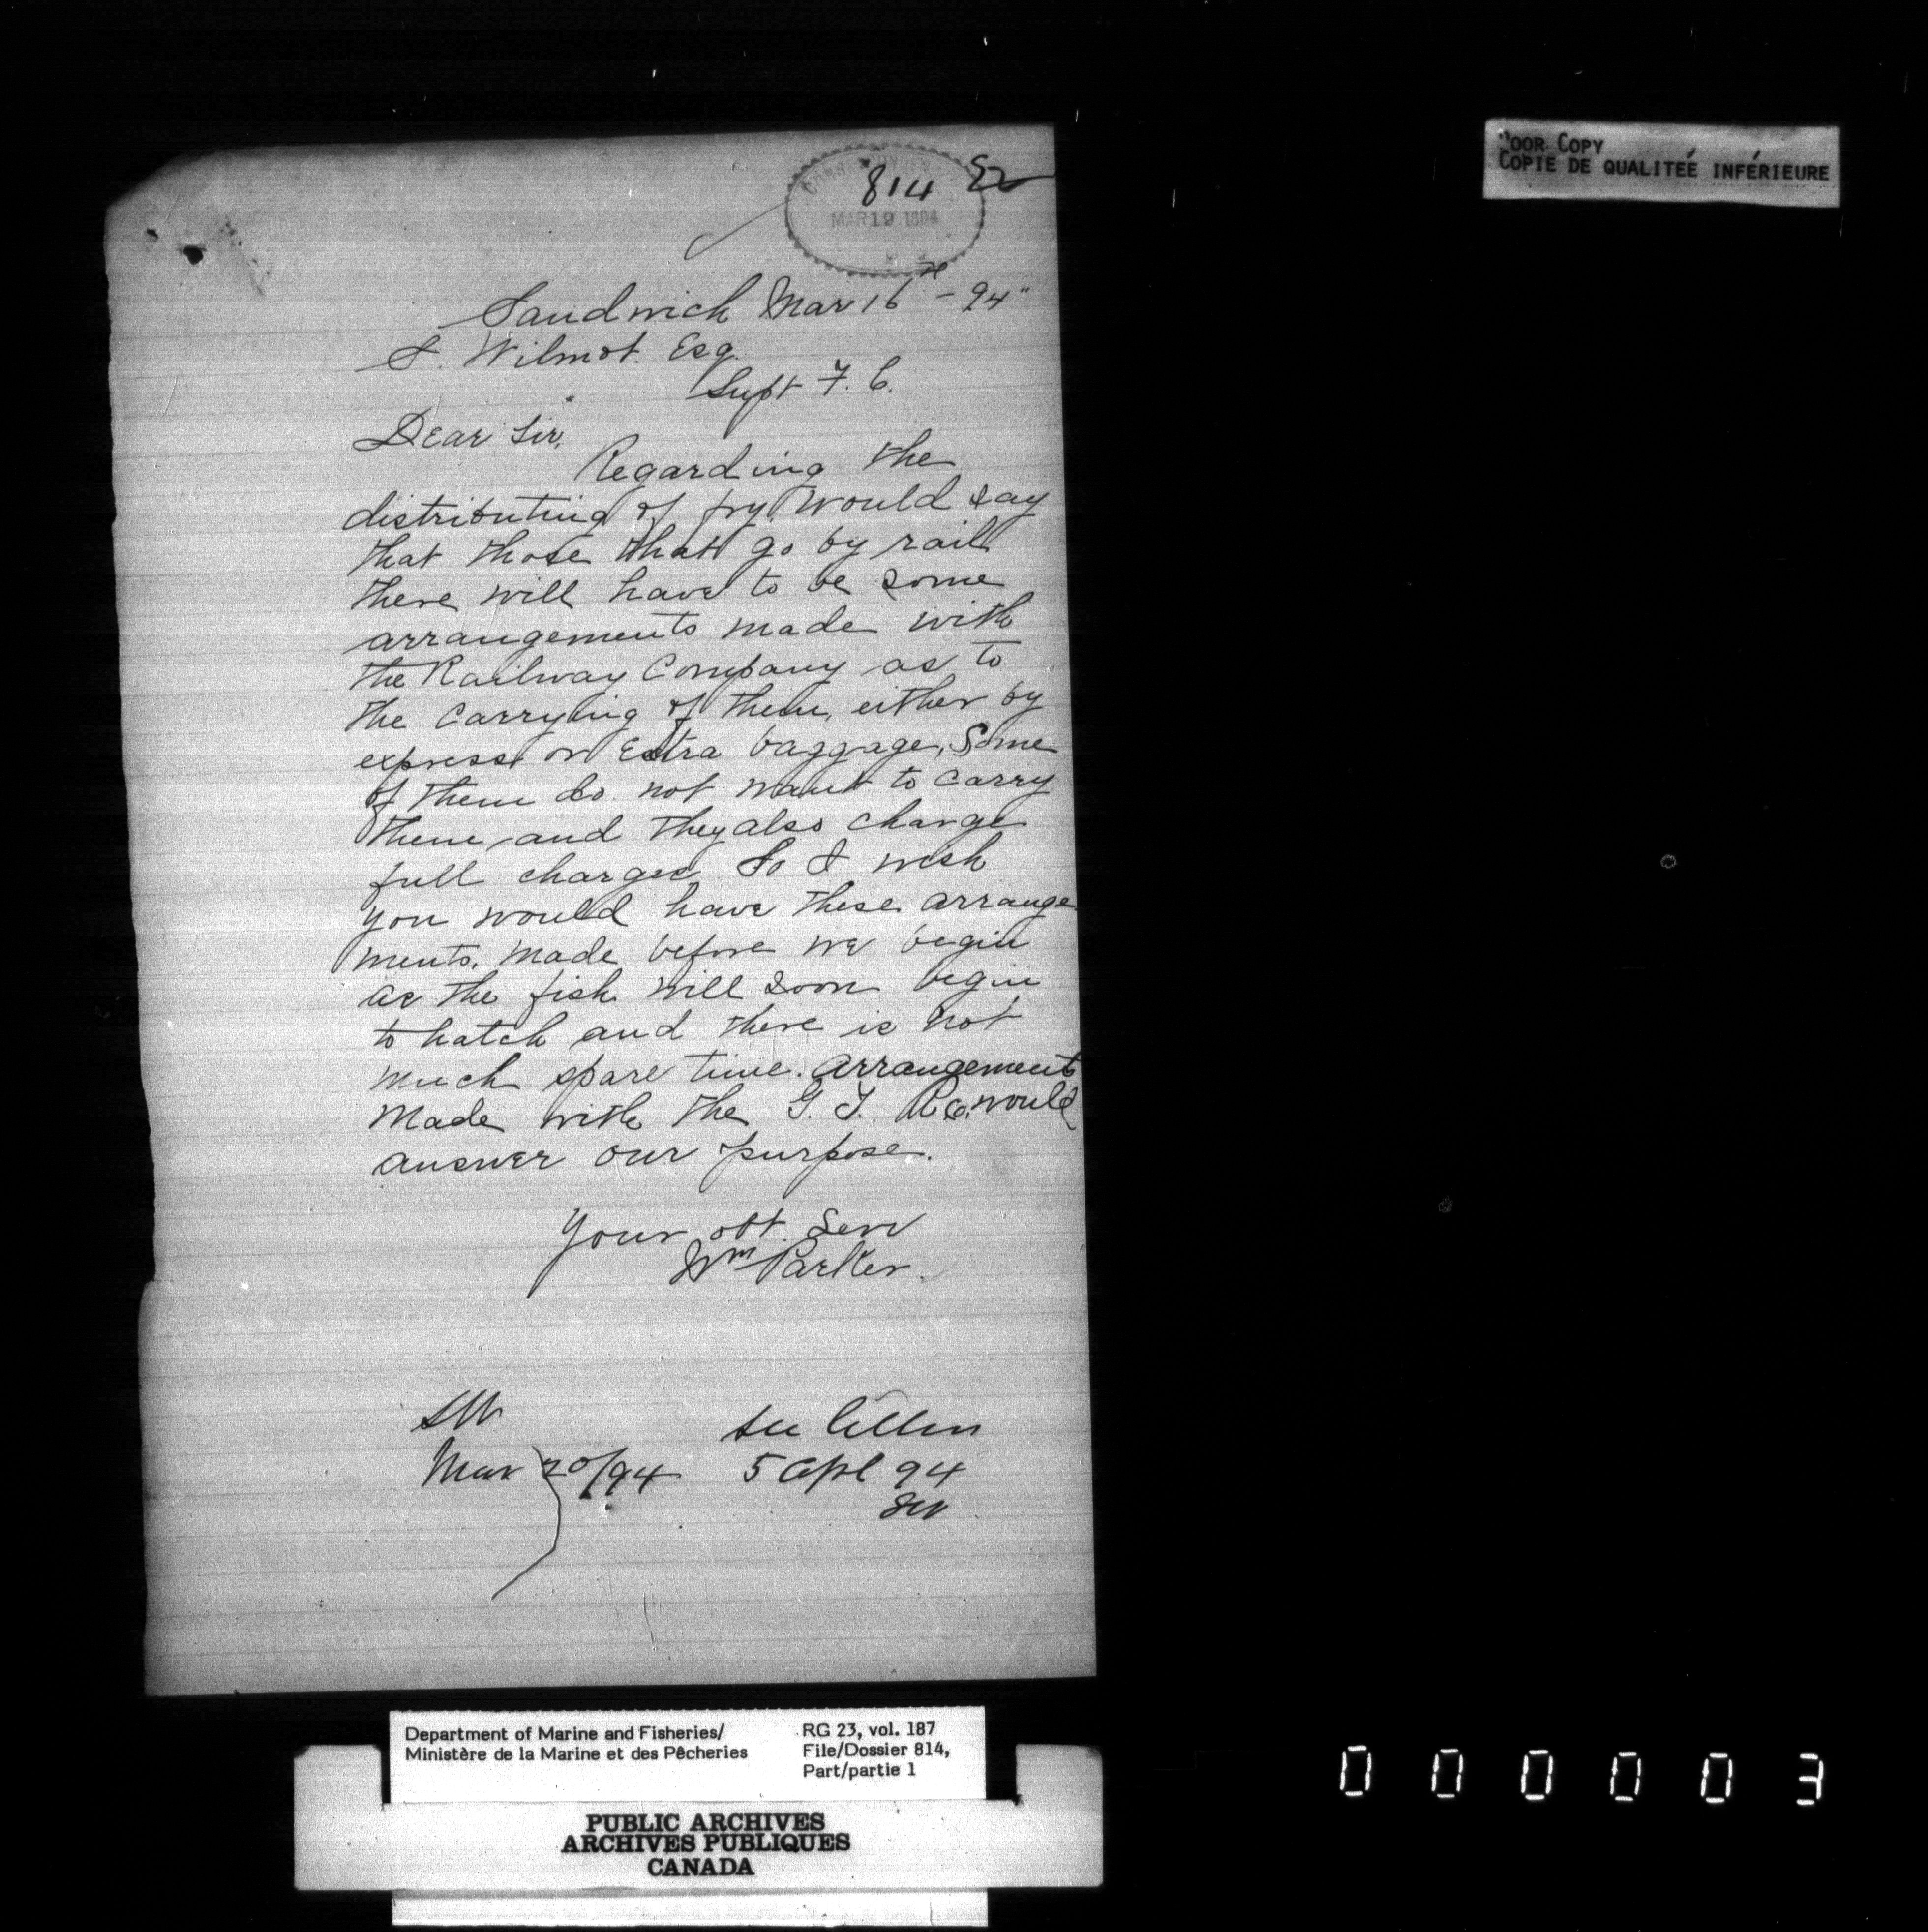 POOR COPY
COPIE DE QUALITEÉ INFÉRIEURE
814
MAR 19 1894
Sandwich Mar 16th - 94"
S. Wilmot. Esq.
Supt F. C.
Dear Sir,
Regarding the
distributing of fry. Would say
that those that go by rail
there will have to be some
arrangements made with
the Railway Company as to
the carrying of them, either by
express or Extra baggage, Some
of them do not want to carry
them and they also charge
full charges So I wish
you would have these arrange
ments, made before we begin
as the fish will soon begin
to hatch and there is not
much spare time. Arrangements
made with the G. T. R Co. would
answer our purpose.
Your obt. Serv
Wm Parker.
SW
Mar 20/94
See
5 Apl 94
SW
Department of Marine and Fisheries/
Ministère de la Marine et des Pêcheries
RG 23, vol. 187
File/Dossier 814,
Part/partie 1
PUBLIC ARCHIVES
ARCHIVES PUBLIQUES
CANADA
000003